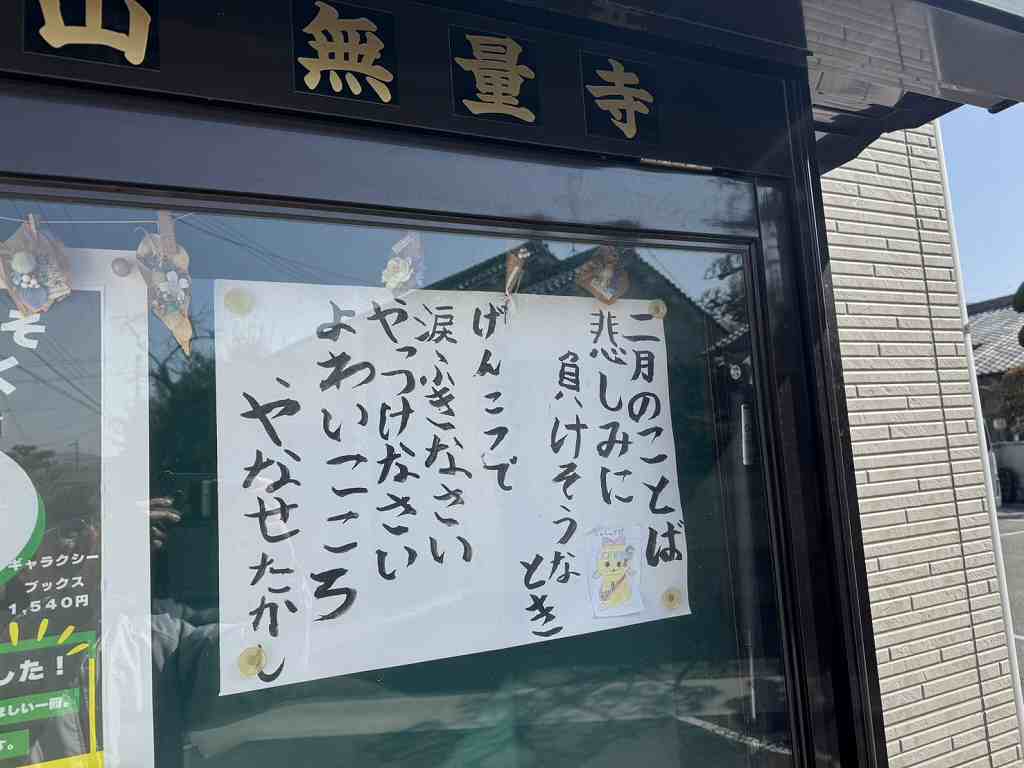 山無量寺
二月のことば
悲しみに
負けそうな
とき
げんこつで
涙ふきなさい
やっつけなさい
よわいこころ
やなせたかし
ギャラクシー
ブックス
1,540円
した！
ほしい一冊。
す。